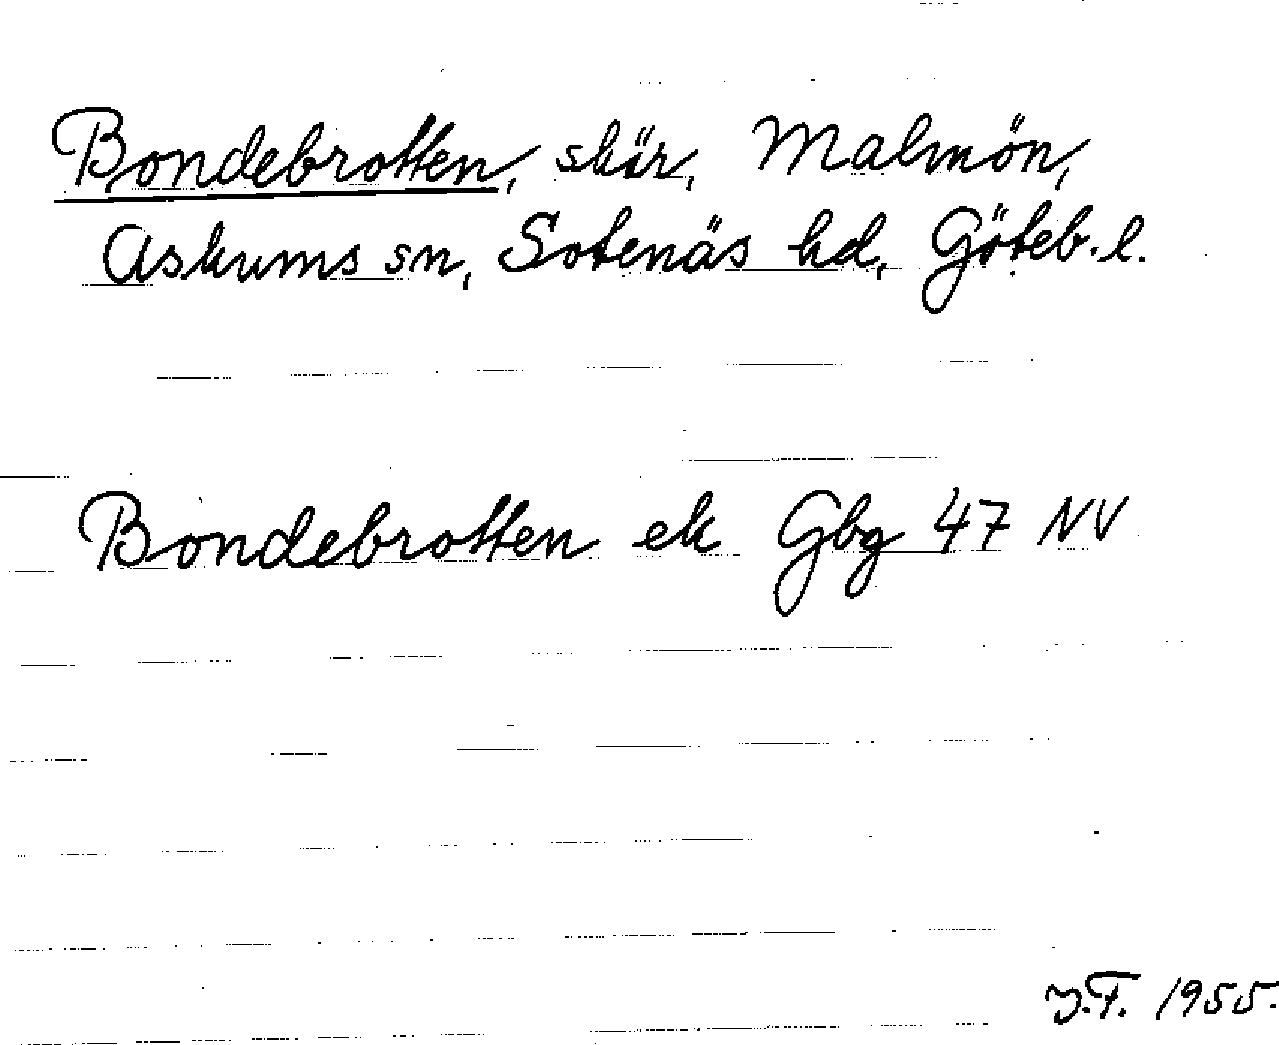 Bondebrotten, skär, Malmön,
Askums sn, Sotenäs hd, Göteb. l.
Bondebrotten ek Gbg 47 NV
J.F. 1955.